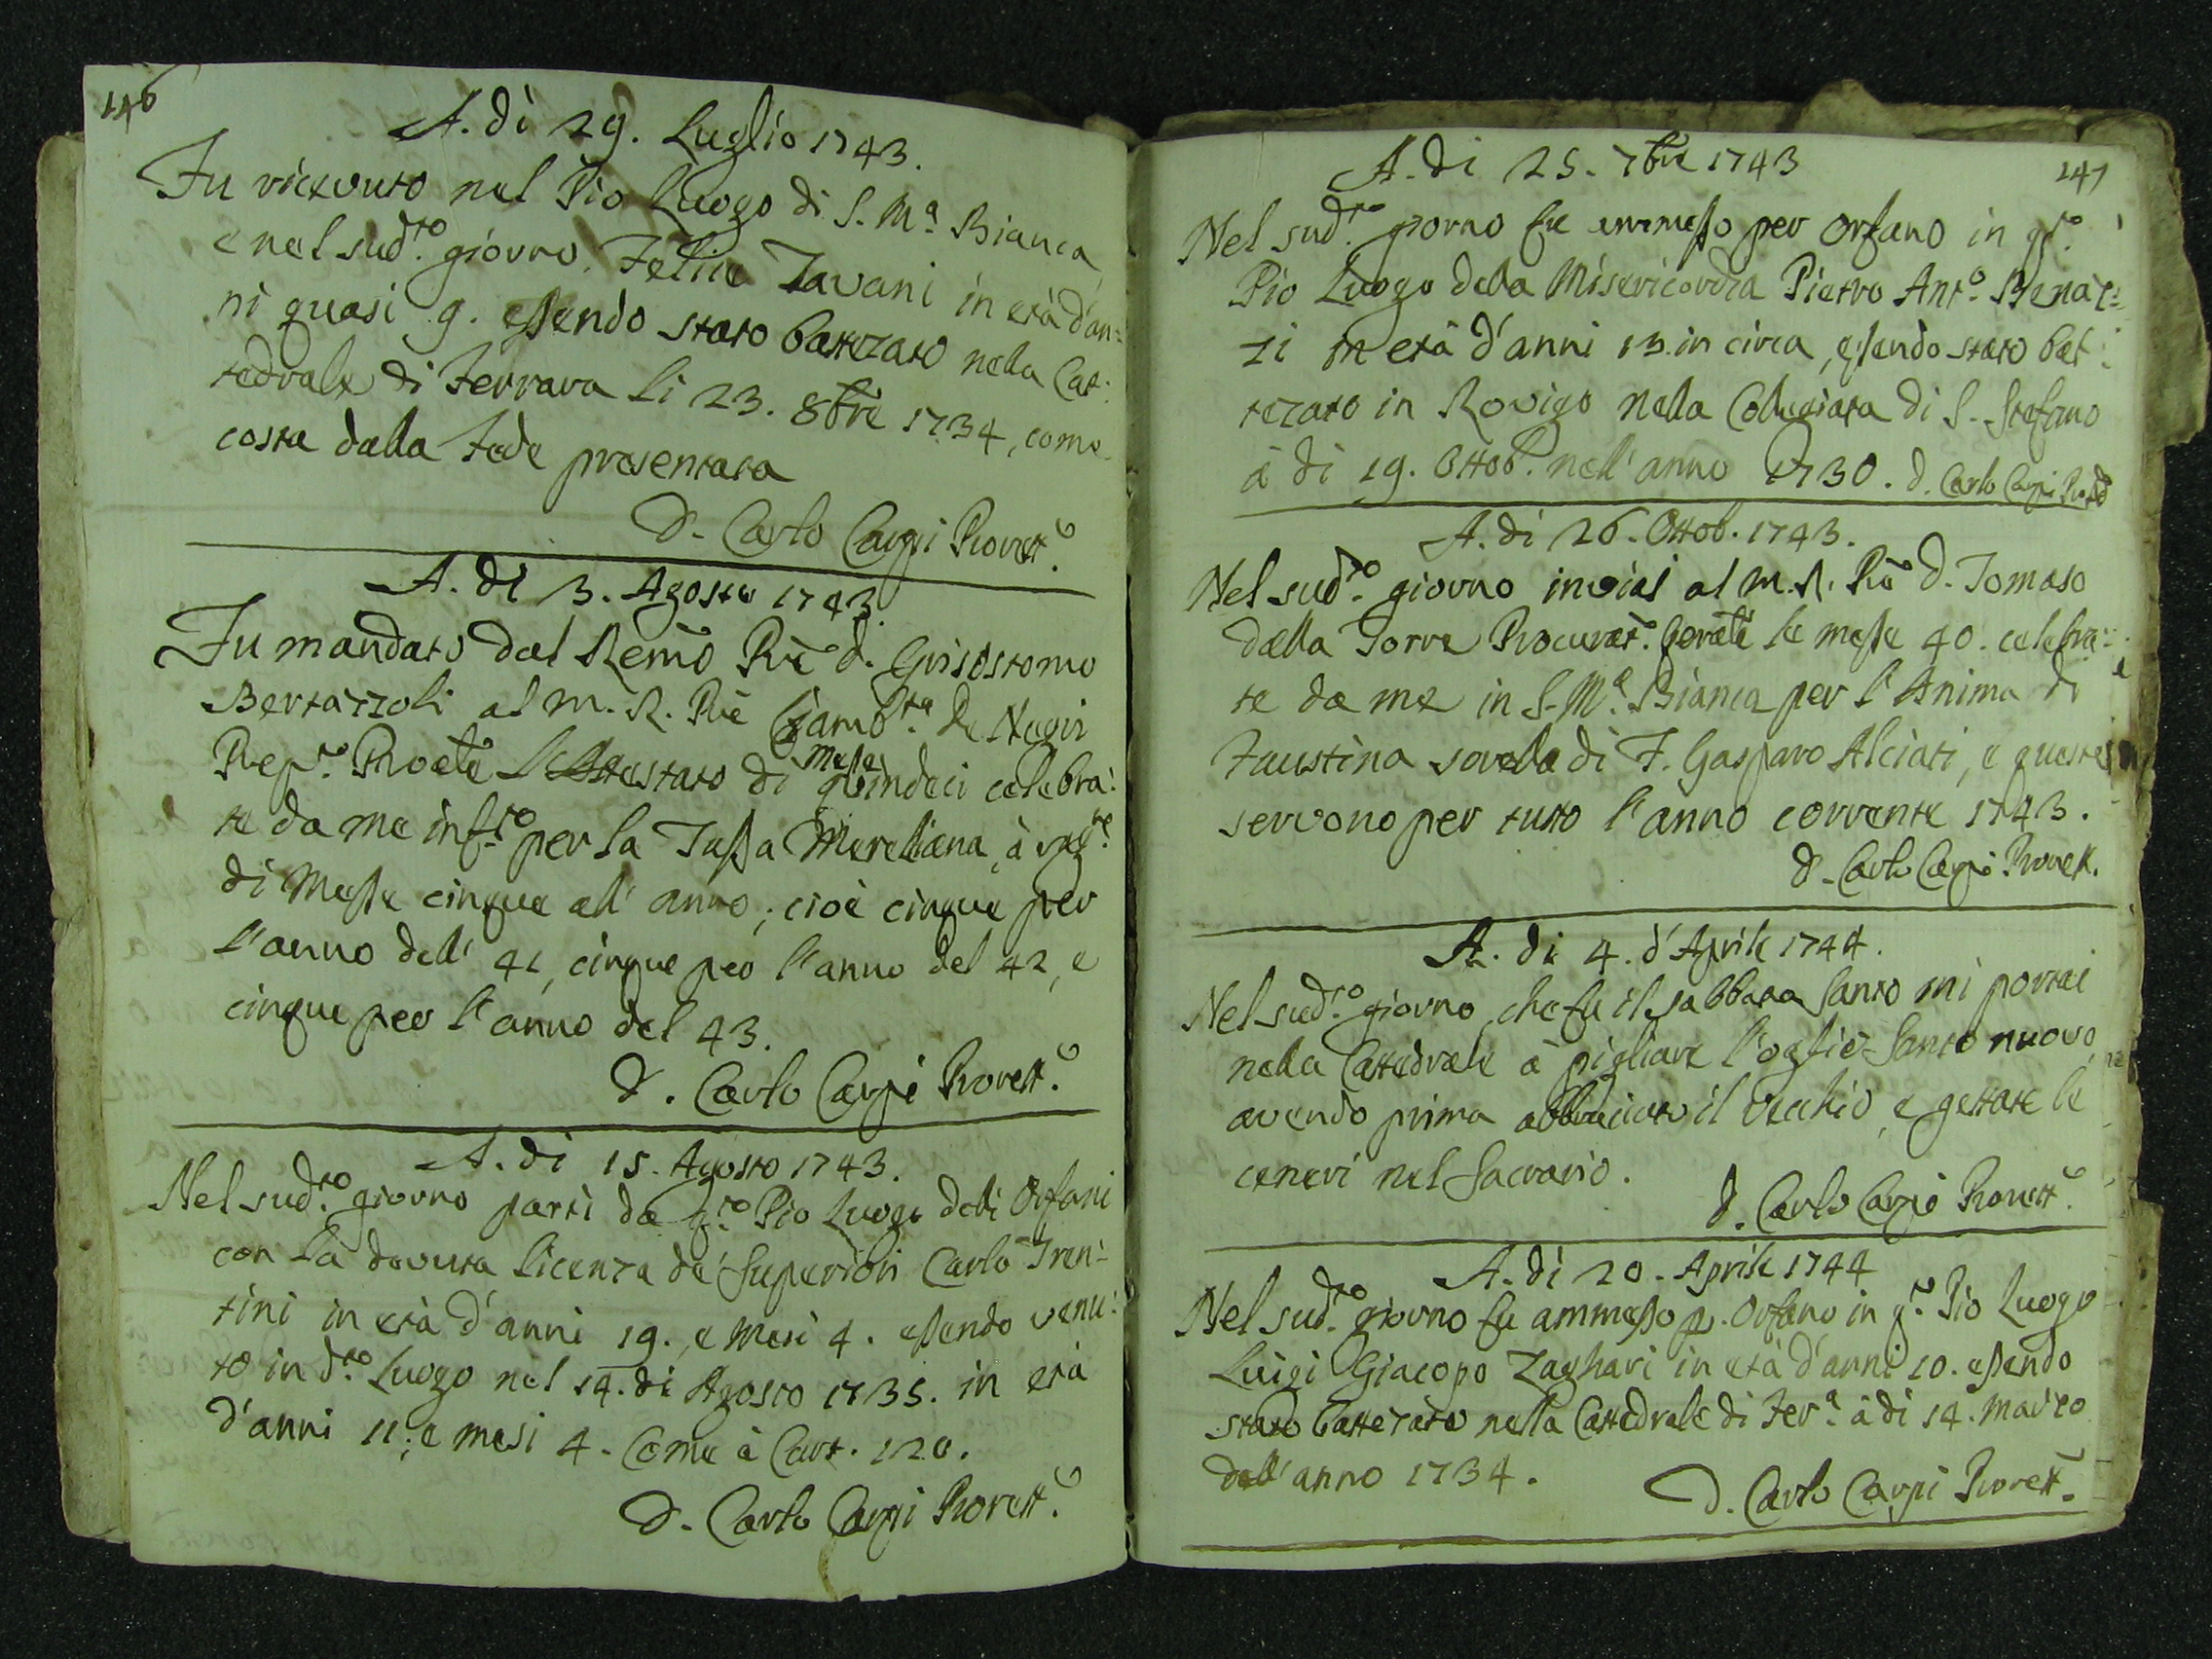 146
A. dì 29. Luglio 1743.
Fu ricevuto nel Pio Luogo di S. Mª. Bianca
e nel sud.to giorno. Felice Tavani in età d'an:
ni quasi 9. essendo stato battezato nella Cat:
tedrale di Ferrara li 23. 8bre 1734, come
costa dalla Fede presentata
D. Carlo Carpi Prorett.e
A. dì 3. Agosto 1743.
Fu mandato dal Remo Pre D. Grisostomo
Bertazzoli al M. R. Pre Giamb.ta De Negri
Rep.to l'Attestato di Messe quindeci celebra:
te da me inf.to per la Tassa Mereliana, à
di Messe cinque all' anno; cioè cinque per
l'anno dell' 41, cinque per l'anno del 42, e
cinque per l'anno del 43.
D. Carlo Carpi Prorett.e
A. di 15. Agosto 1743.
Nel sud.to giorno partì da q.to Pio Luogo delli Orfani
con la dovuta licenza de' Superiori Carlo Tren:
tini in età d'anni 19., e Mesi 4. essendo venu:
to in d.to Luogo nel 14. di Agosto 1735. in età
d'anni 11; e mesi 4. Come à Cart. 120.
D. Carlo Carpi Prorett.e
147
A. di 25. 7bre 1743
Nel sud.to giorno fu ammesso per Orfano in q.to
Pio Luogo della Misericordia Pietro Ant.o Benaz:
zi in età d'anni 13. in circa, essendo stato bat:
tezato in Rovigo nella Collegiata di S. Stefano
à di 19. Ottob. nell' anno 1730. D. Carlo Carpi
A. di 26. Ottob. 1743.
Nel sud.to giorno inviai al M. R. Pre D. Tomaso
dalla Torre Procurat. Genále le messe 40. celebra:
te da me in S. Mª. Bianca per l'Anima di
Faustina sorella di F. Gasparo Alciati, e queste
servono per tutto l'anno corrente 1743.
D. Carlo Carpi Prorett.
A. di 4. d'Aprile 1744.
Nel sud.to giorno, che fu il sabbato Santo mi portai
nella Cattedrale à pigliare l'oglio Santo nuovo,
avendo prima abbruciato il Vecchio, e gettate le
ceneri nel Sacrario.
D. Carlo Carpi Prorett.e
A. di 20. Aprile 1744
Nel sud.to giorno fu ammesso p. Orfano in q.to Pio Luogo
Luigi Giacopo Zaghari in età d'anni 10. essendo
stato battezato nella Cattedrale di Fer.ª à di 14. Marzo
dell' anno 1734.
D. Carlo Carpi Prorett.e